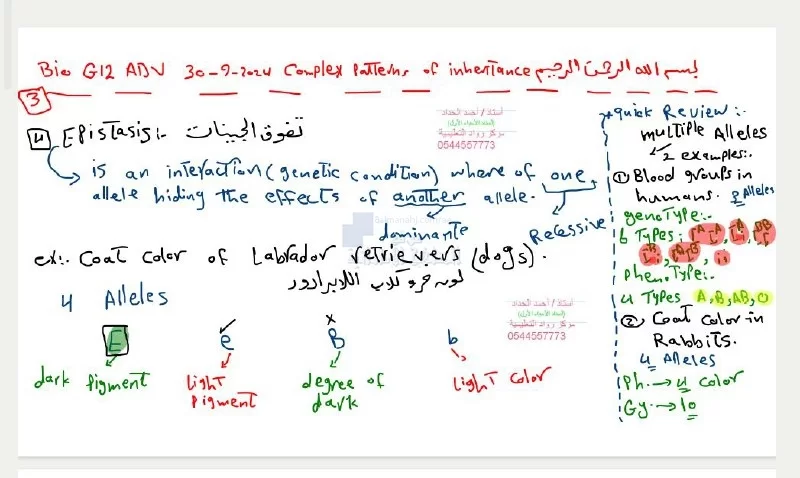 Bio G12 ADV 30-9-2024 Complex Patterns of inheritance بسم الله الرحمن الرحيم
3
4 Epistasis:- تفوق الجينات
is an interaction (genetic condition) where of one
allele hiding the effects of another allele.
dominante
Recessive
ex:. Coat color of Labrador retrievers (dogs).
لون فرو كلاب اللابرادور
4 Alleles
E e B b
dark pigment
light pigment
degree of dark
light color
أستاذ / أحمد الحداد
مركز رواد التعليمية
0544557773
almanahj.com
أستاذ / أحمد الحداد
مركز رواد التعليمية
0544557773
quick Review:-
multiple Alleles
2 examples:.
1 Blood groups in
humans. 3 Alleles
genotype:-
6 Types:
phenotype:-
4 Types A, B, AB, O
2 Coat color in
Rabbits.
4 Alleles
Ph. → 4 color
Gy. → 10